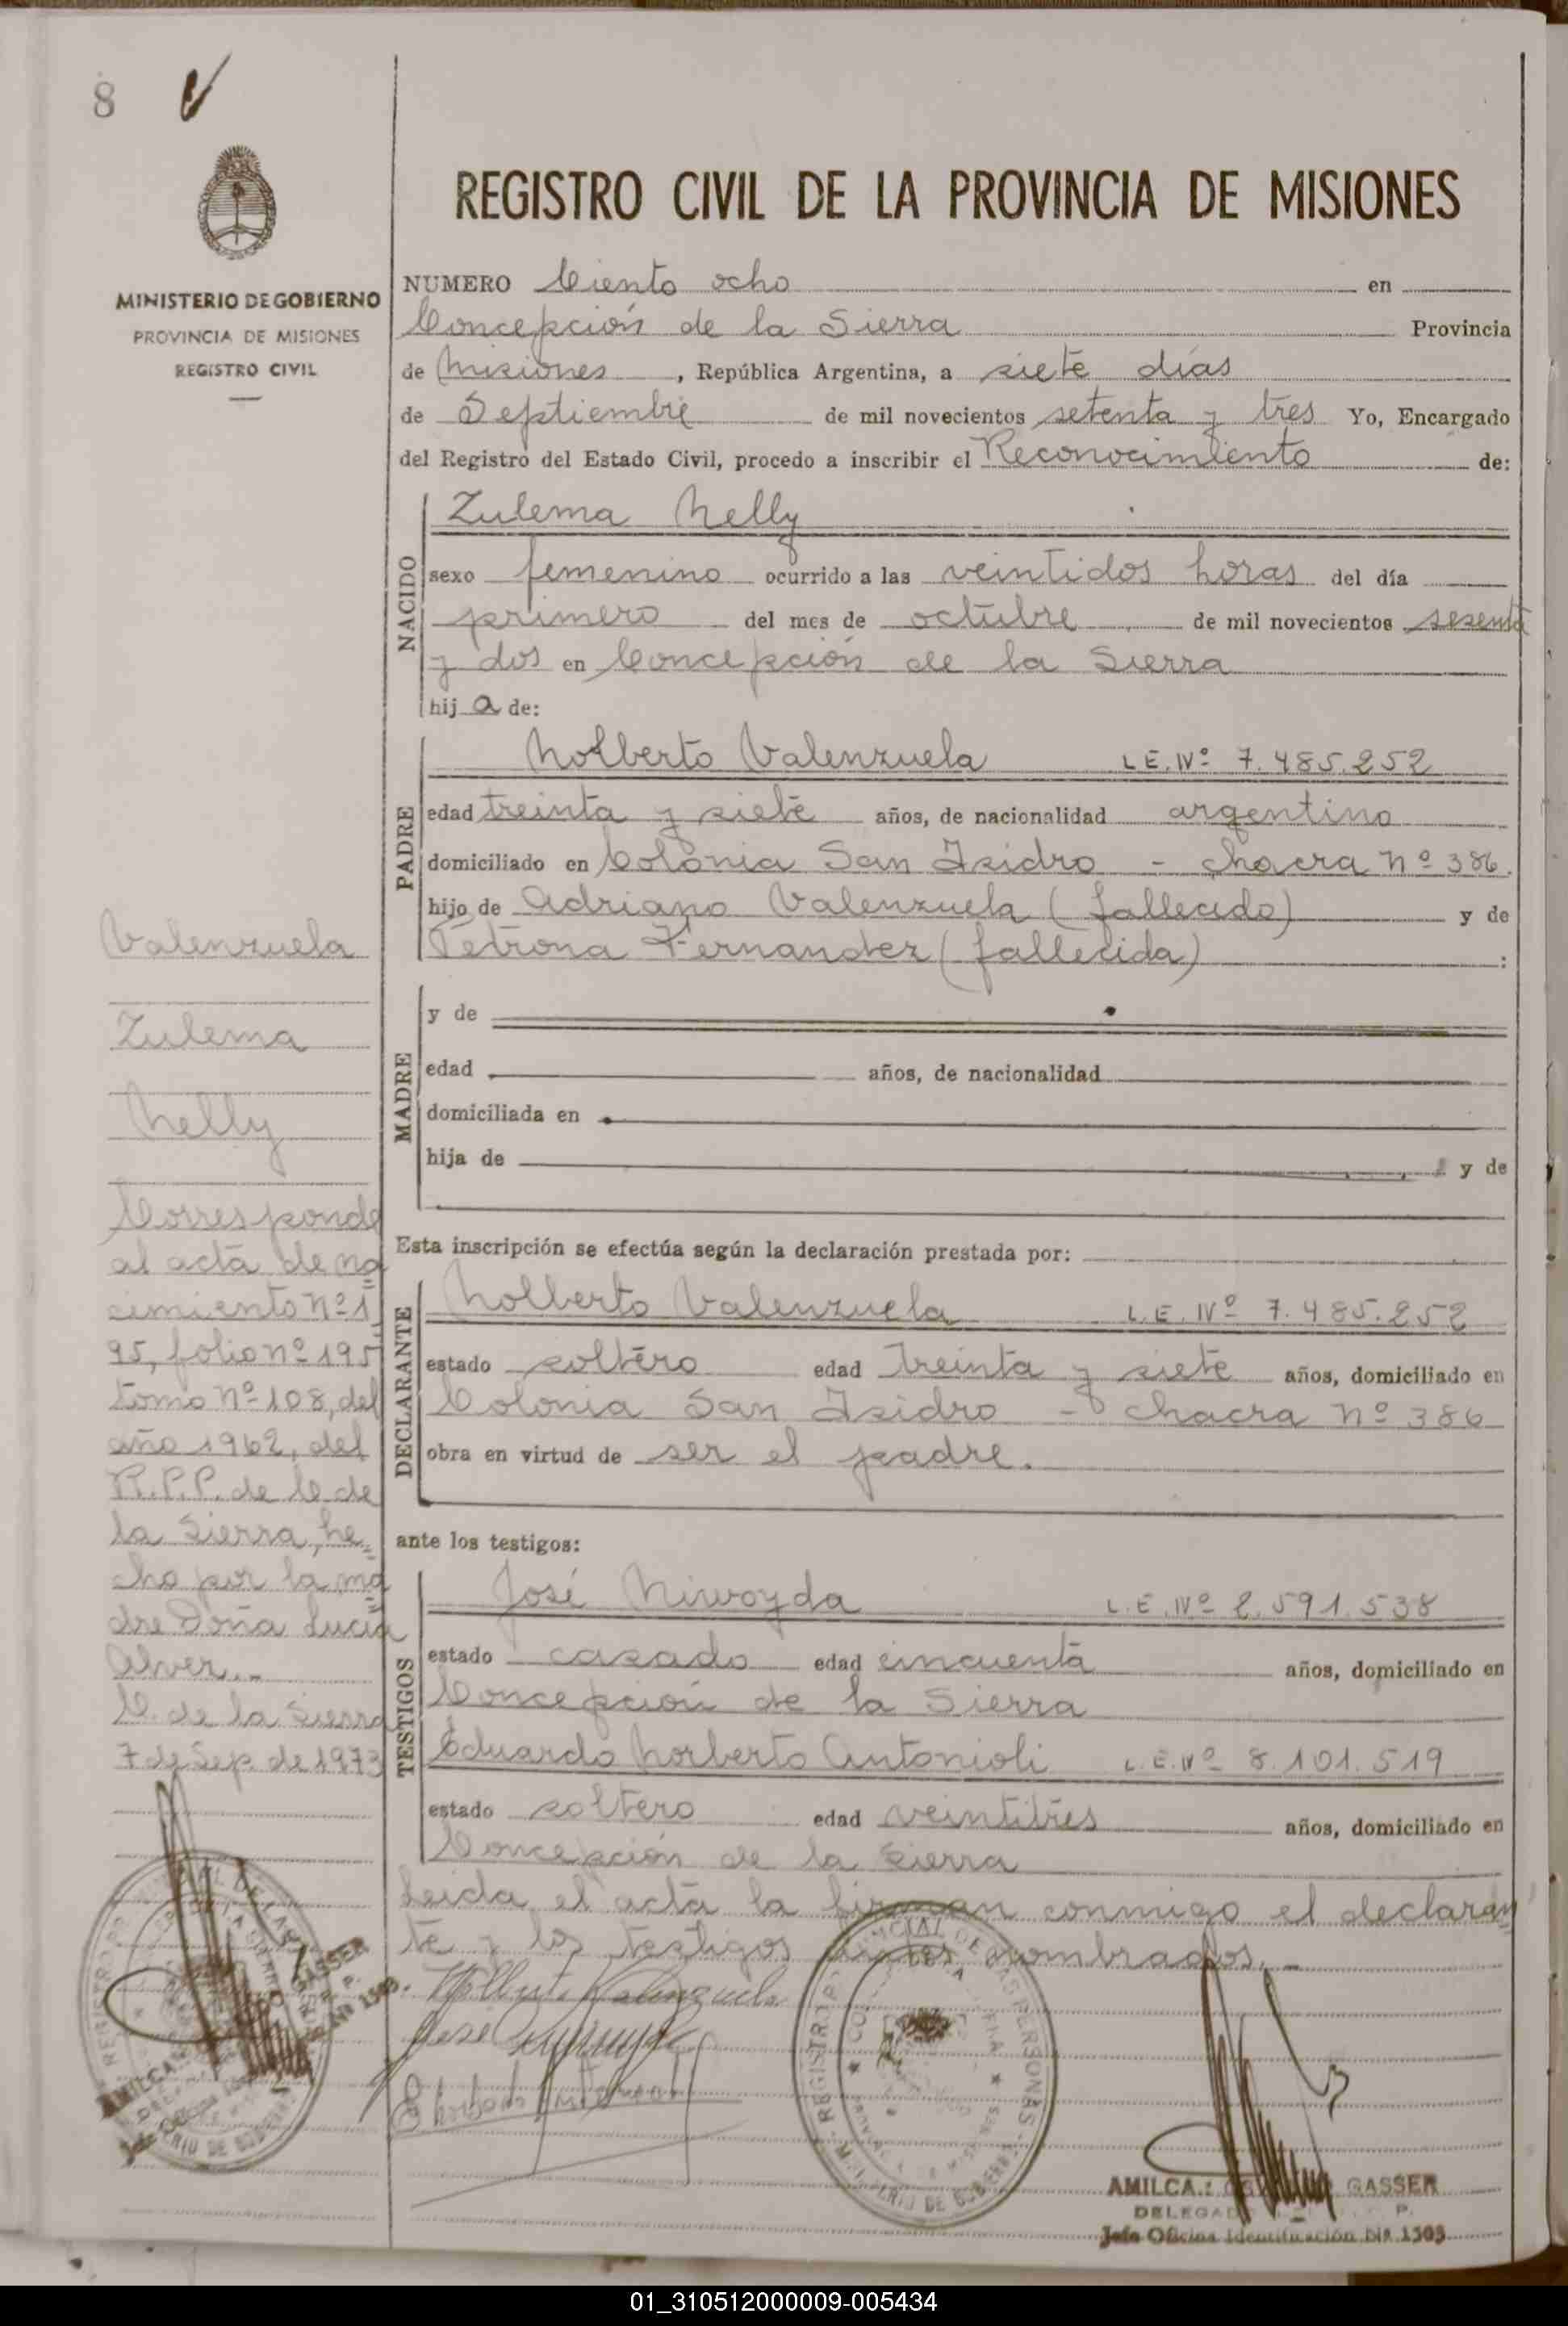 8
REGISTRO CIVIL DE LA PROVINCIA DE MISIONES
MINISTERIO DE GOBIERNO
PROVINCIA DE MISIONES
REGISTRO CIVIL
NUMERO Ciento ocho en
Concepción de la Sierra Provincia
de Misiones, República Argentina, a siete días
de Septiembre de mil novecientos setenta y tres Yo, Encargado
del Registro del Estado Civil, procedo a inscribir el Reconocimiento de:
NACIDO
Zulema Nelly
sexo femenino ocurrido a las veintidos horas del día
primero del mes de octubre de mil novecientos sesenta
y dos en Concepción de la Sierra
hija de:
PADRE
Nolberto Valenzuela L.E. Nº 7.485.252
edad treinta y siete años, de nacionalidad argentino
domiciliado en Colonia San Isidro - chacra nº 386.
hijo de Adriano Valenzuela (fallecido) y de
Petrona Fernandez (fallecida) :
MADRE
y de
edad años, de nacionalidad
domiciliada en
hija de y de
Esta inscripción se efectúa según la declaración prestada por:
DECLARANTE
Nolberto Valenzuela L.E. Nº 7.485.252
estado soltero edad treinta y siete años, domiciliado en
Colonia San Isidro - chacra nº 386
obra en virtud de ser el padre.
ante los testigos:
TESTIGOS
José Niwoyda L.E. Nº 2.591.538
estado casado edad cincuenta años, domiciliado en
Concepción de la Sierra
Eduardo Norberto Antonioli L.E. Nº 8.101.519
estado soltero edad veintitres años, domiciliado en
Concepción de la Sierra
Leida el acta la firman conmigo el declaran
te y los testigos antes nombrados.-
Valenzuela
Zulema
Nelly
Corresponde
al acta de na=
cimiento nº 1
95, folio nº 195,
tomo nº 108, del
año 1962, del
R.P.P. de C. de
la Sierra, he=
cho por la ma=
dre Doña Lucia
Alver..-
C. de la Sierra
7 de Sep. de 1973
Nolberto Valenzuela
Jose
AMILCAR GASSER
Jefe Oficina Identificación Nº 1503
REGISTRO PROVINCIAL DE LAS PERSONAS
MINISTERIO DE GOBIERNO
01_310512000009-005434